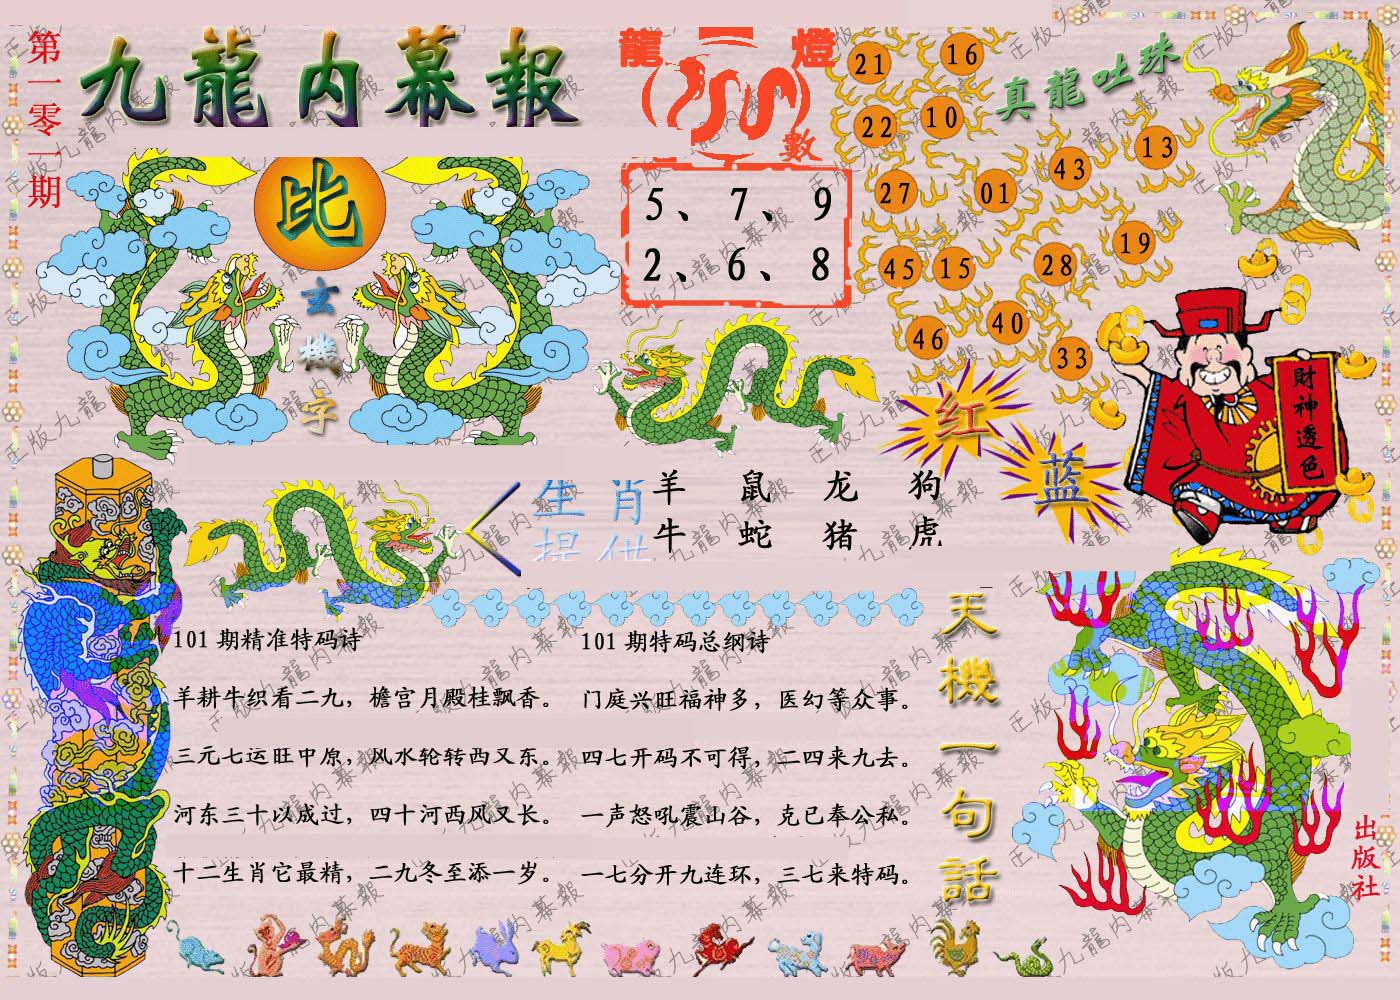 第一零一期
九龍内幕報
龍燈
數
5、7、9
2、6、8
真龍吐珠
21
16
22
10
13
43
27
01
19
45
15
28
46
40
33
比
玄機字
財神透色
红
蓝
生肖
提供
羊 鼠 龙 狗
牛 蛇 猪 虎
101 期精准特码诗
羊耕牛织看二九，檐宫月殿桂飘香。
三元七运旺中原，风水轮转西又东。
河东三十以成过，四十河西风又长。
十二生肖它最精，二九冬至添一岁。
101 期特码总纲诗
门庭兴旺福神多，医幻等众事。
四七开码不可得，二四来九去。
一声怒吼震山谷，克已奉公私。
一七分开九连环，三七来特码。
天機一句話
出版社
正版九龍内幕報